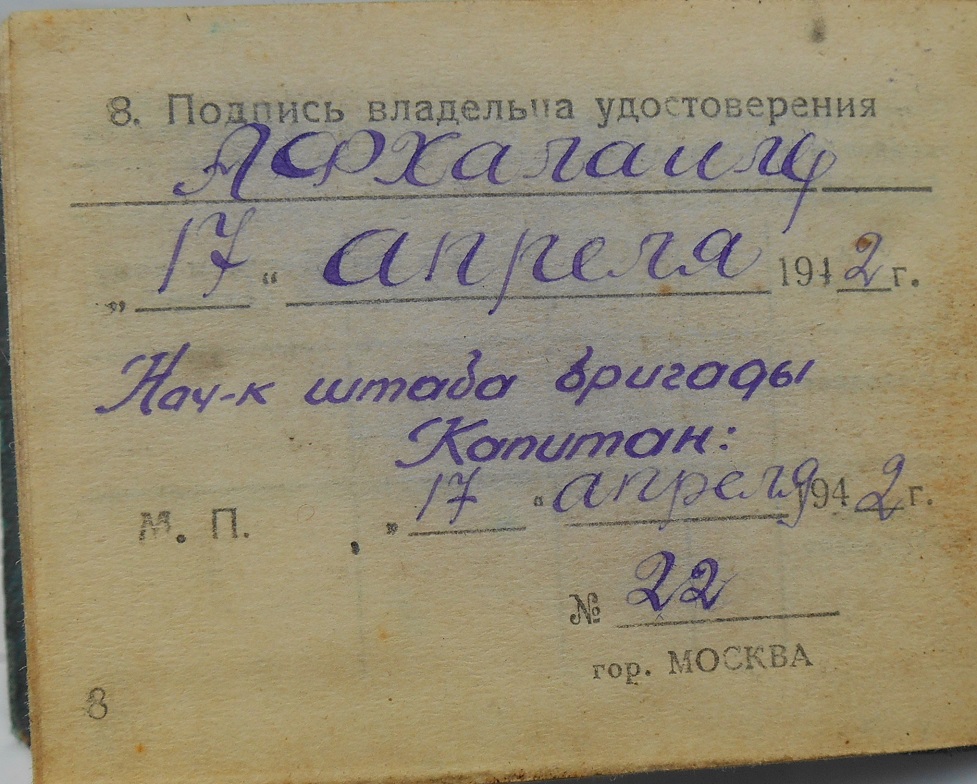 8. Подпись владельца удостоверения
„ 17 “ апреля 1942 г.
Нач-к штаба бригады
Капитан:
М. П. „ 17 “ апреля 1942 г.
№ 22
гор. МОСКВА
8